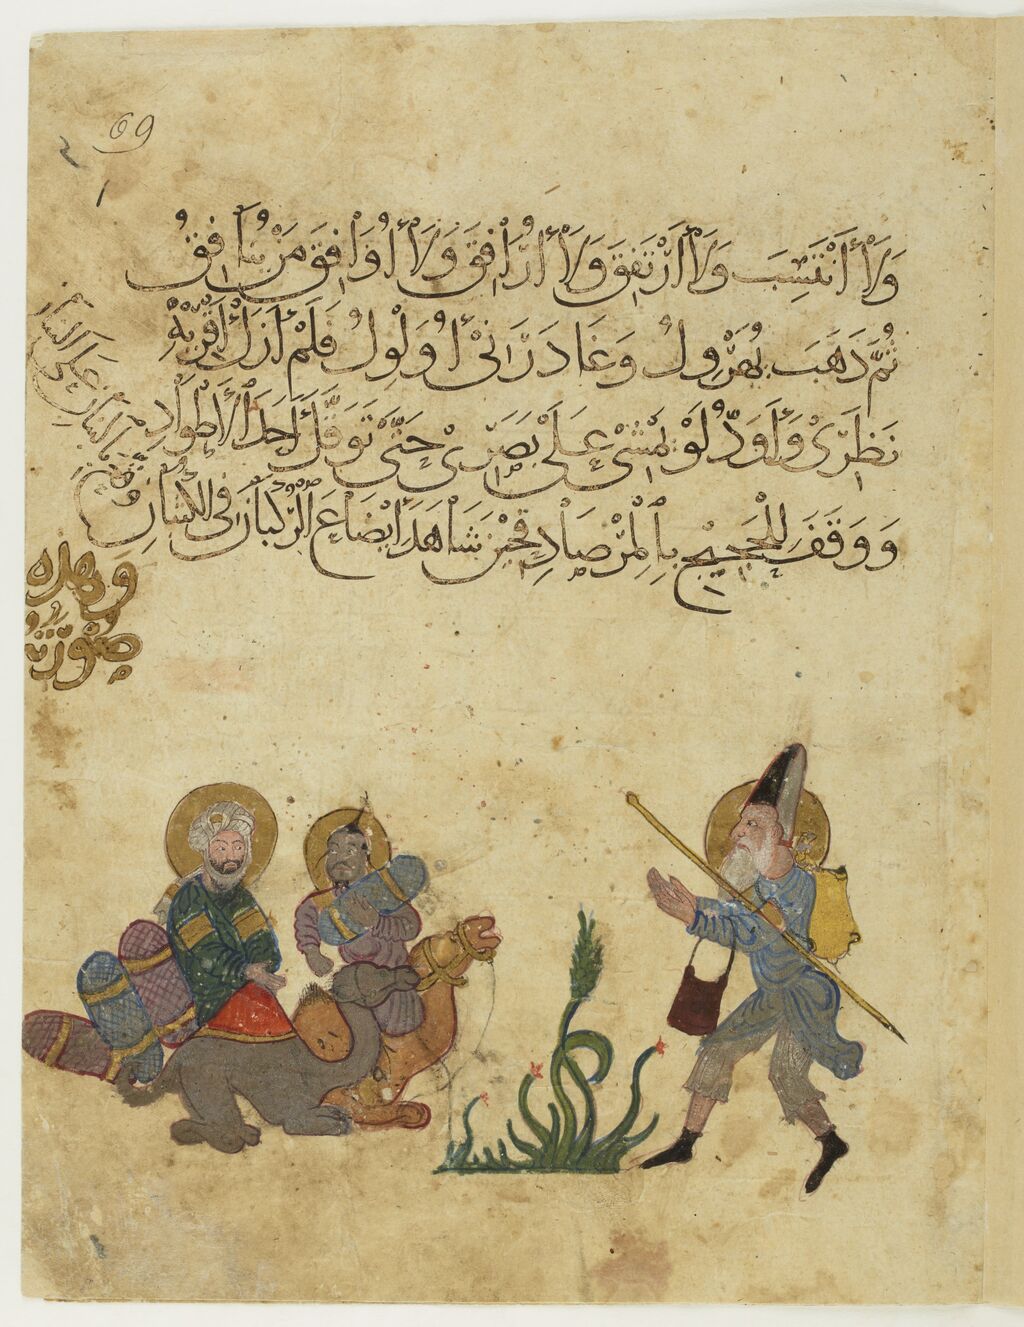 69
وَلَا أَنْتَسِبَ وَلَا أَرْتَفِقَ وَلَا أُرَافِقَ وَلَا أُوَافِقَ مَنْ يُنَافِقُ
ثُمَّ ذَهَبَ يُهَرْوِلُ وَغَادَرَنِي أُوَلْوِلُ فَلَمْ أَزَلْ أَقْرِيهِ
نَظَرِي وَأَوَدُّ لَوْ يَمْشِي عَلَى بَصَرِي حَتَّى تَوَقَّلَ أَحَدَ الْأَطْوَادِ
وَوَقَفَ لِلْحَجِيجِ بِالْمِرْصَادِ فَحِينَ شَاهَدَ إِيضَاعَ الرُّكْبَانِ فِي الْكُثْبَانِ
وَهَذِهِ
صُورَتُهُ